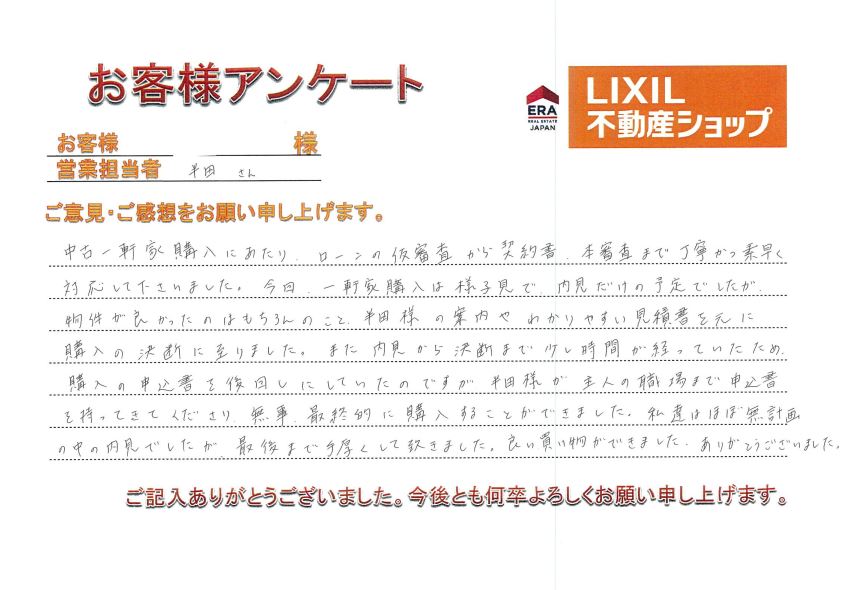 お客様アンケート
ERA
REAL ESTATE
JAPAN
LIXIL
不動産ショップ
お客様 様
営業担当者 半田 さん
ご意見・ご感想をお願い申し上げます。
中古一軒家購入にあたり、ローンの仮審査から契約書、本審査まで丁寧かつ素早く
対応して下さいました。今回、一軒家購入は様子見で、内見だけの予定でしたが、
物件が良かったのはもちろんのこと、半田様の案内やわかりやすい見積書を元に
購入の決断に至りました。また内見から決断まで少し時間が経っていたため、
購入の申込書を後回しにしていたのですが半田様が主人の職場まで申込書
を持ってきてくださり、無事、最終的に購入することができました。私達はほぼ無計画
の中の内見でしたが、最後まで手厚くして頂きました。良い買い物ができました。ありがとうございました。
ご記入ありがとうございました。今後とも何卒よろしくお願い申し上げます。